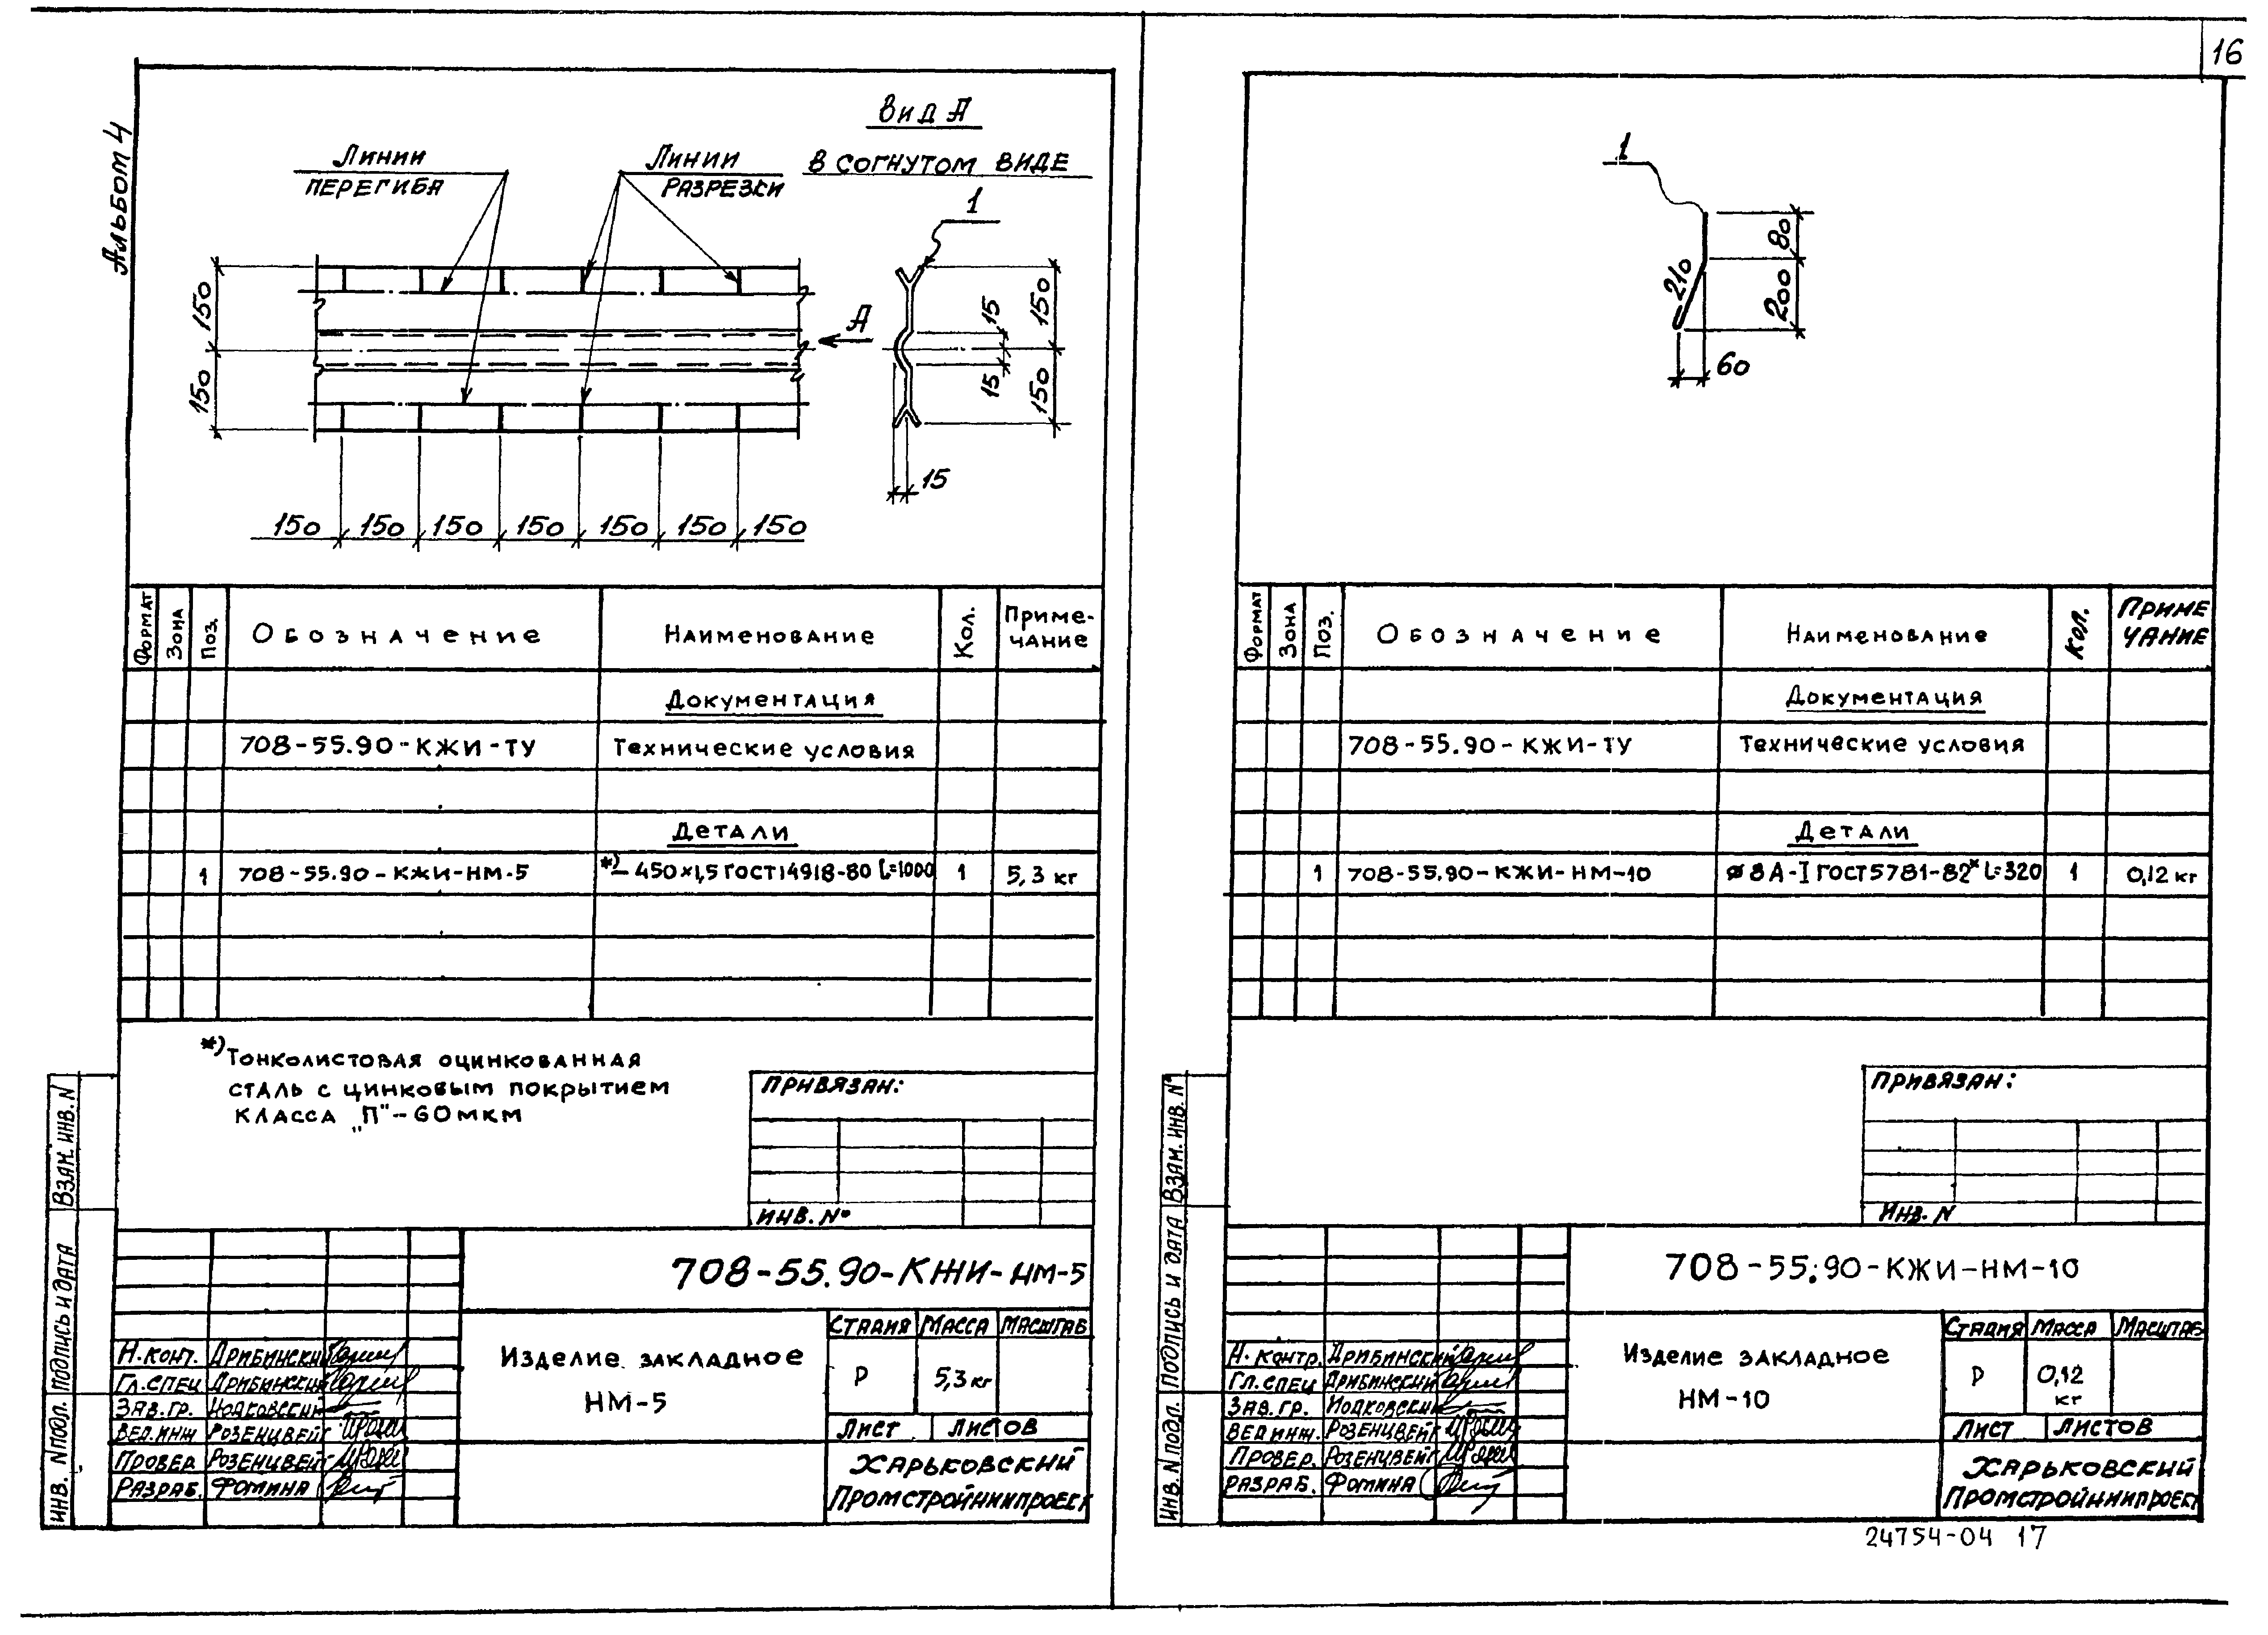 16
Альбом 4
Вид А
в согнутом виде
Линии
перегиба
Линии
разрезки
1
А
150
150
15
15
150
150
15
150 150 150 150 150 150 150
Формат Зона Поз. Обозначение Наименование Кол. Примечание
Документация
708-55.90-КЖИ-ТУ Технические условия
Детали
1 708-55.90-КЖИ-НМ-5 *)– 450×1,5 ГОСТ14918-80 L=1000 1 5,3 кг
*) Тонколистовая оцинкованная
сталь с цинковым покрытием
класса „П"-60мкм
Привязан:
Инв. №
Взам. инв. N
Подпись и дата
Инв. N подл.
708-55.90-КЖИ-НМ-5
Н.конт. Дрибинский
Гл.спец Дрибинский
Зав.гр.
Вед.инж Розенцвейг
Провер Розенцвейг
Разраб. Фомина
Изделие закладное
НМ-5
Стадия Масса Масштаб
Р 5,3 кг
Лист Листов
Харьковский
Промстройниипроект
1
80
210
200
60
Формат Зона Поз. Обозначение Наименование Кол. Примечание
Документация
708-55.90-КЖИ-ТУ Технические условия
Детали
1 708-55.90-КЖИ-НМ-10 ø8А-I ГОСТ5781-82* L=320 1 0,12 кг
Привязан:
Инв. N
Взам. инв. №
Подпись и дата
Инв. N подл.
708-55.90-КЖИ-НМ-10
Н.контр. Дрибинский
Гл.спец Дрибинский
Зав.гр.
Вед.инж. Розенцвейг
Провер. Розенцвейг
Разраб. Фомина
Изделие закладное
НМ-10
Стадия Масса Масштаб
Р 0,12
кг
Лист Листов
Харьковский
Промстройниипроект
24754-04 17